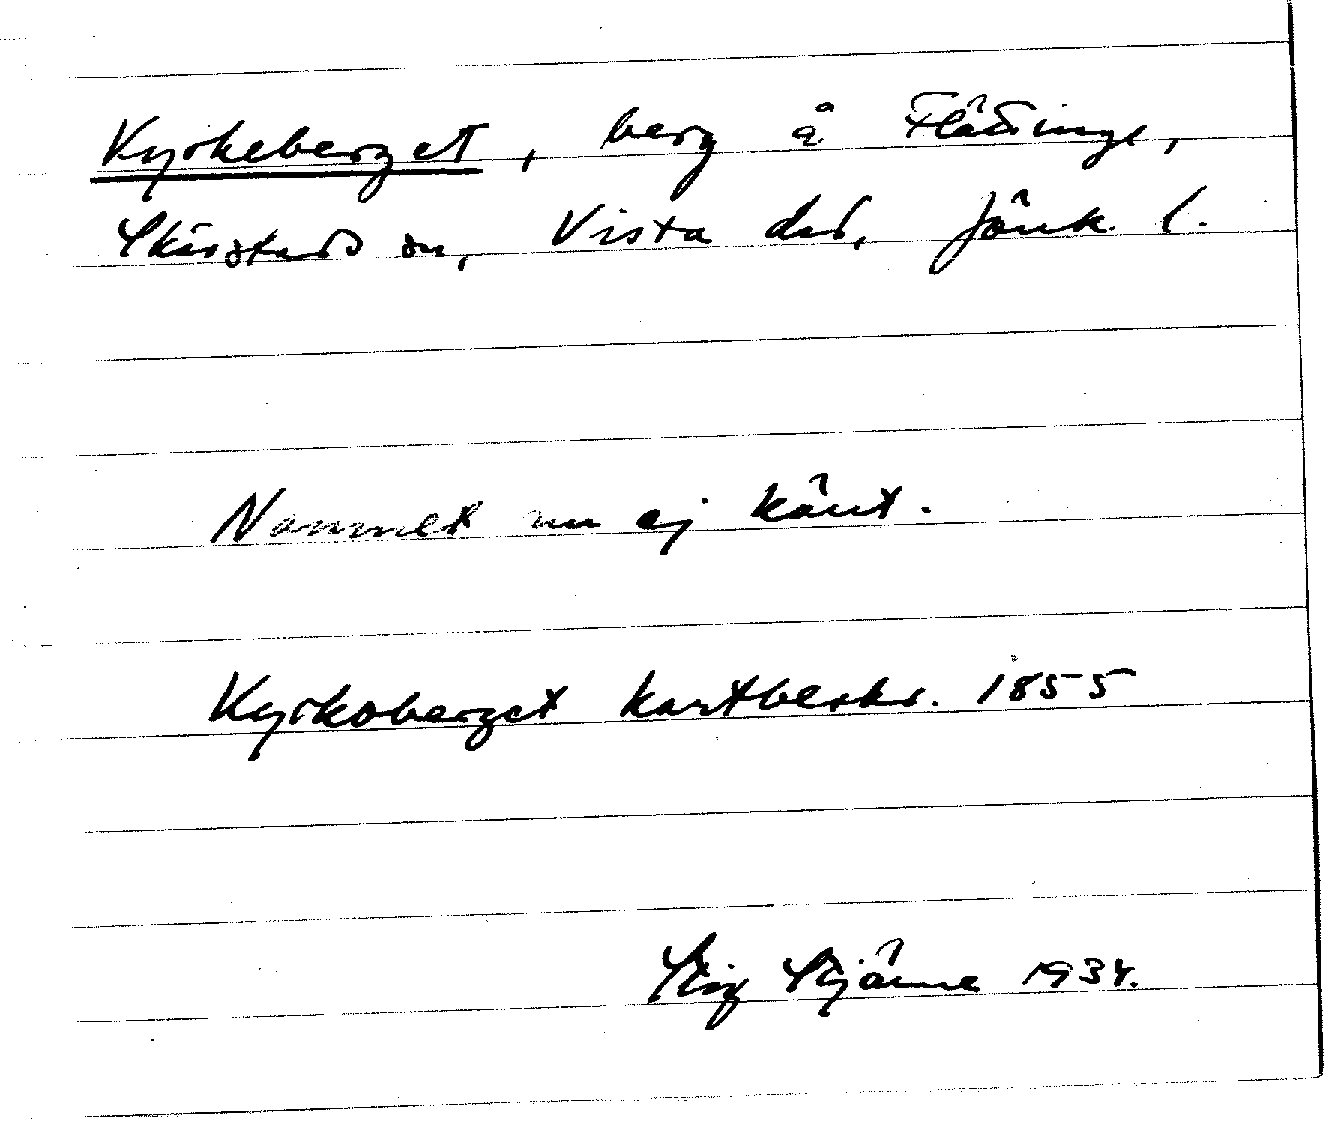 Kyrkeberget, berg å Flättinge,
Skärstads sn, Vista hd, Jönk. l.
Namnet nu ej känt.
Kyrkoberget kartbeskr. 1855
Stig Stjärne 1934.